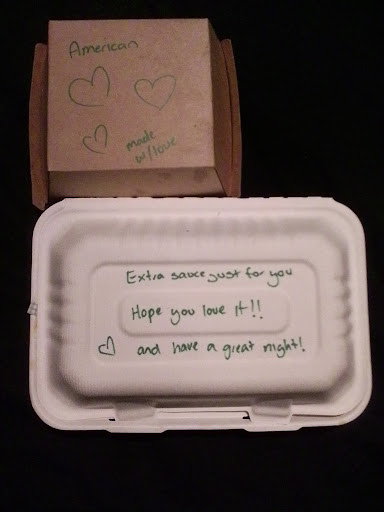 American
made
w/love
Extra sauce just for you
Hope you love it!!
and have a great night!